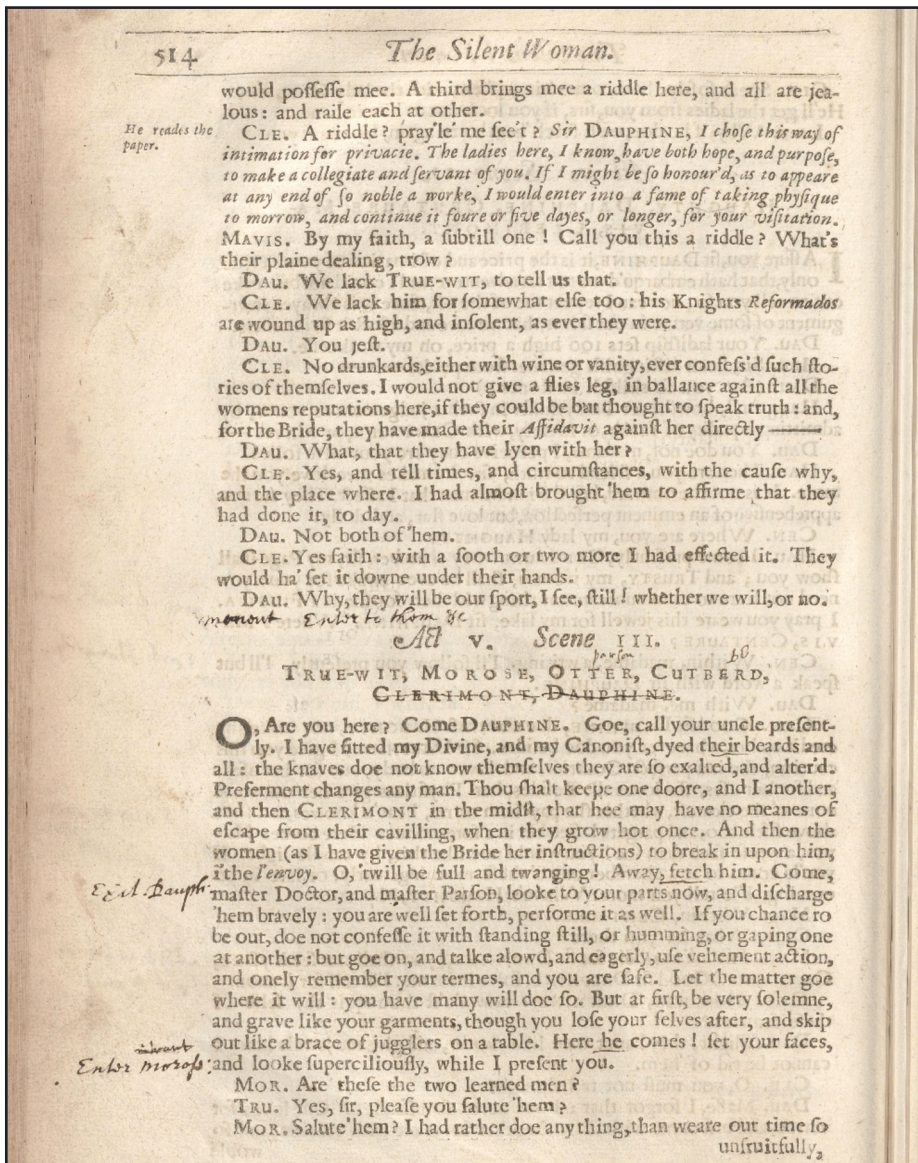 514 The Silent Woman.
would poſſeſſe mee. A third brings mee a riddle here, and all are jea-
lous: and raile each at other.
He reades the
paper.
CLE. A riddle? pray'le' me ſee't? Sir DAUPHINE, I choſe this way of
intimation for privacie. The ladies here, I know, have both hope, and purpoſe,
to make a collegiate and ſervant of you. If I might be ſo honour'd, as to appeare
at any end of ſo noble a worke, I would enter into a fame of taking phyſique
to morrow, and continue it foure or five dayes, or longer, for your viſitation.
MAVIS. By my faith, a ſubtill one! Call you this a riddle? What's
their plaine dealing, trow?
DAU. We lack TRUE-WIT, to tell us that.
CLE. We lack him for ſomewhat elſe too: his Knights Reformados
are wound up as high, and inſolent, as ever they were.
DAU. You jeſt.
CLE. No drunkards, either with wine or vanity, ever confeſs'd ſuch ſto-
ries of themſelves. I would not give a flies leg, in ballance againſt all the
womens reputations here, if they could be but thought to ſpeak truth: and,
for the Bride, they have made their Affidavit againſt her directly ——
DAU. What, that they have lyen with her?
CLE. Yes, and tell times, and circumſtances, with the cauſe why,
and the place where. I had almoſt brought 'hem to affirme that they
had done it, to day.
DAU. Not both of 'hem.
CLE. Yes faith: with a ſooth or two more I had effected it. They
would ha' ſet it downe under their hands.
DAU. Why, they will be our ſport, I ſee, ſtill! whether we will, or no.
Enter to them &c
Act V. Scene III.
parson
TRUE-WIT, MOROSE, OTTER, CUTBERD,
CLERIMONT, DAUPHINE.
O, Are you here? Come DAUPHINE. Goe, call your uncle preſent-
ly. I have fitted my Divine, and my Canoniſt, dyed their beards and
all: the knaves doe not know themſelves they are ſo exalted, and alter'd.
Preferment changes any man. Thou ſhalt keepe one doore, and I another,
and then CLERIMONT in the midſt, that hee may have no meanes of
eſcape from their cavilling, when they grow hot once. And then the
women (as I have given the Bride her inſtructions) to break in upon him,
i'the l'envoy. O, 'twill be full and twanging! Away, fetch him. Come,
Exit Dauph:
maſter Doctor, and maſter Parſon, looke to your parts now, and diſcharge
'hem bravely: you are well ſet forth, performe it as well. If you chance ro
be out, doe not confeſſe it with ſtanding ſtill, or humming, or gaping one
at another: but goe on, and talke alowd, and eagerly, uſe vehement action,
and onely remember your termes, and you are ſafe. Let the matter goe
where it will: you have many will doe ſo. But at firſt, be very ſolemne,
and grave like your garments, though you loſe your ſelves after, and skip
out like a brace of jugglers on a table. Here he comes! ſet your faces,
Enter Moroſs:
and looke ſuperciliouſly, while I preſent you.
MOR. Are theſe the two learned men?
TRU. Yes, ſir, pleaſe you ſalute 'hem?
MOR. Salute 'hem? I had rather doe any thing, than weare out time ſo
unfruitfully,